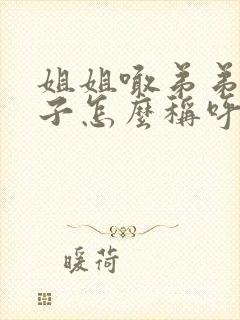 姐姐噉弟弟
子怎麼稱呼
暖荷